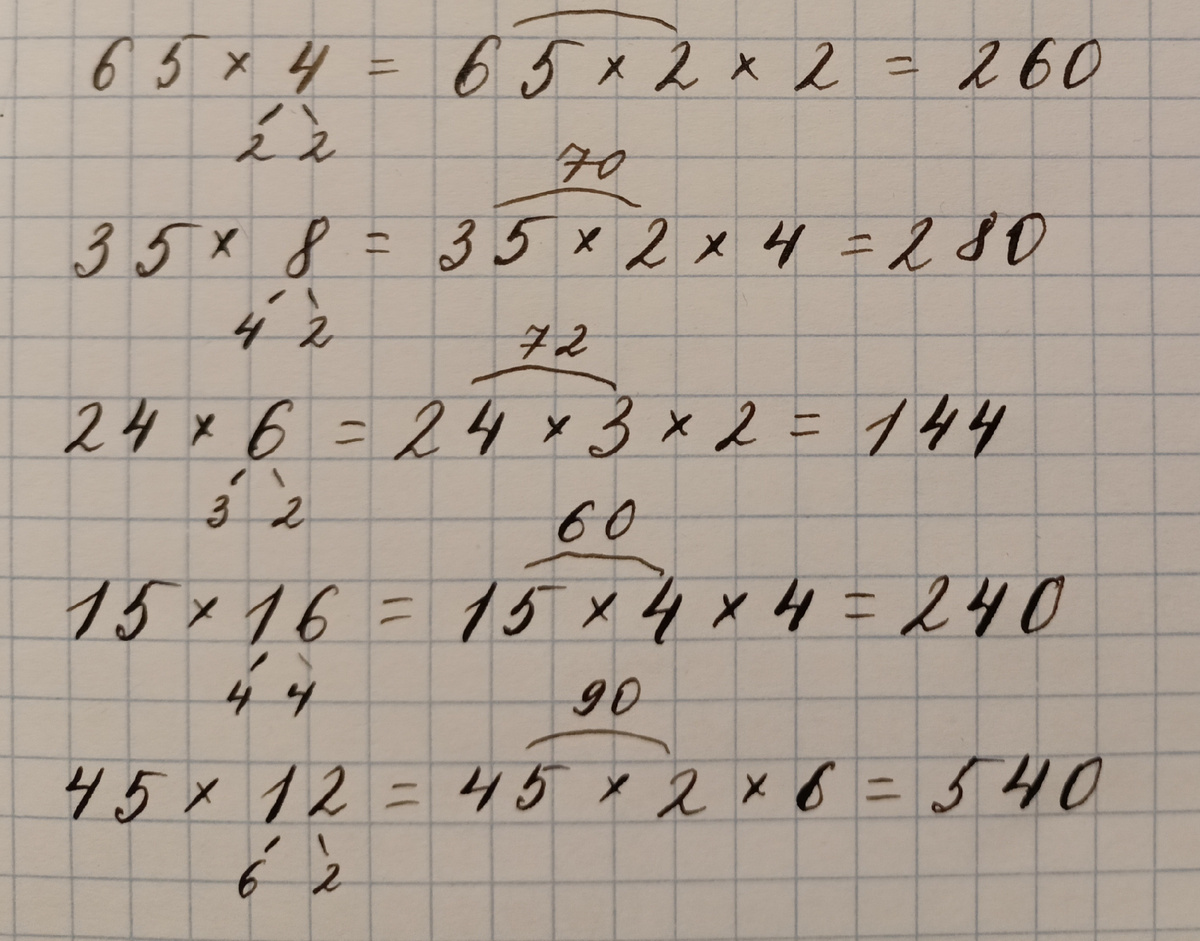 65 × 4 = 65 × 2 × 2 = 260
2 2
70
35 × 8 = 35 × 2 × 4 = 280
4 2
72
24 × 6 = 24 × 3 × 2 = 144
3 2
60
15 × 16 = 15 × 4 × 4 = 240
4 4
90
45 × 12 = 45 × 2 × 6 = 540
6 2